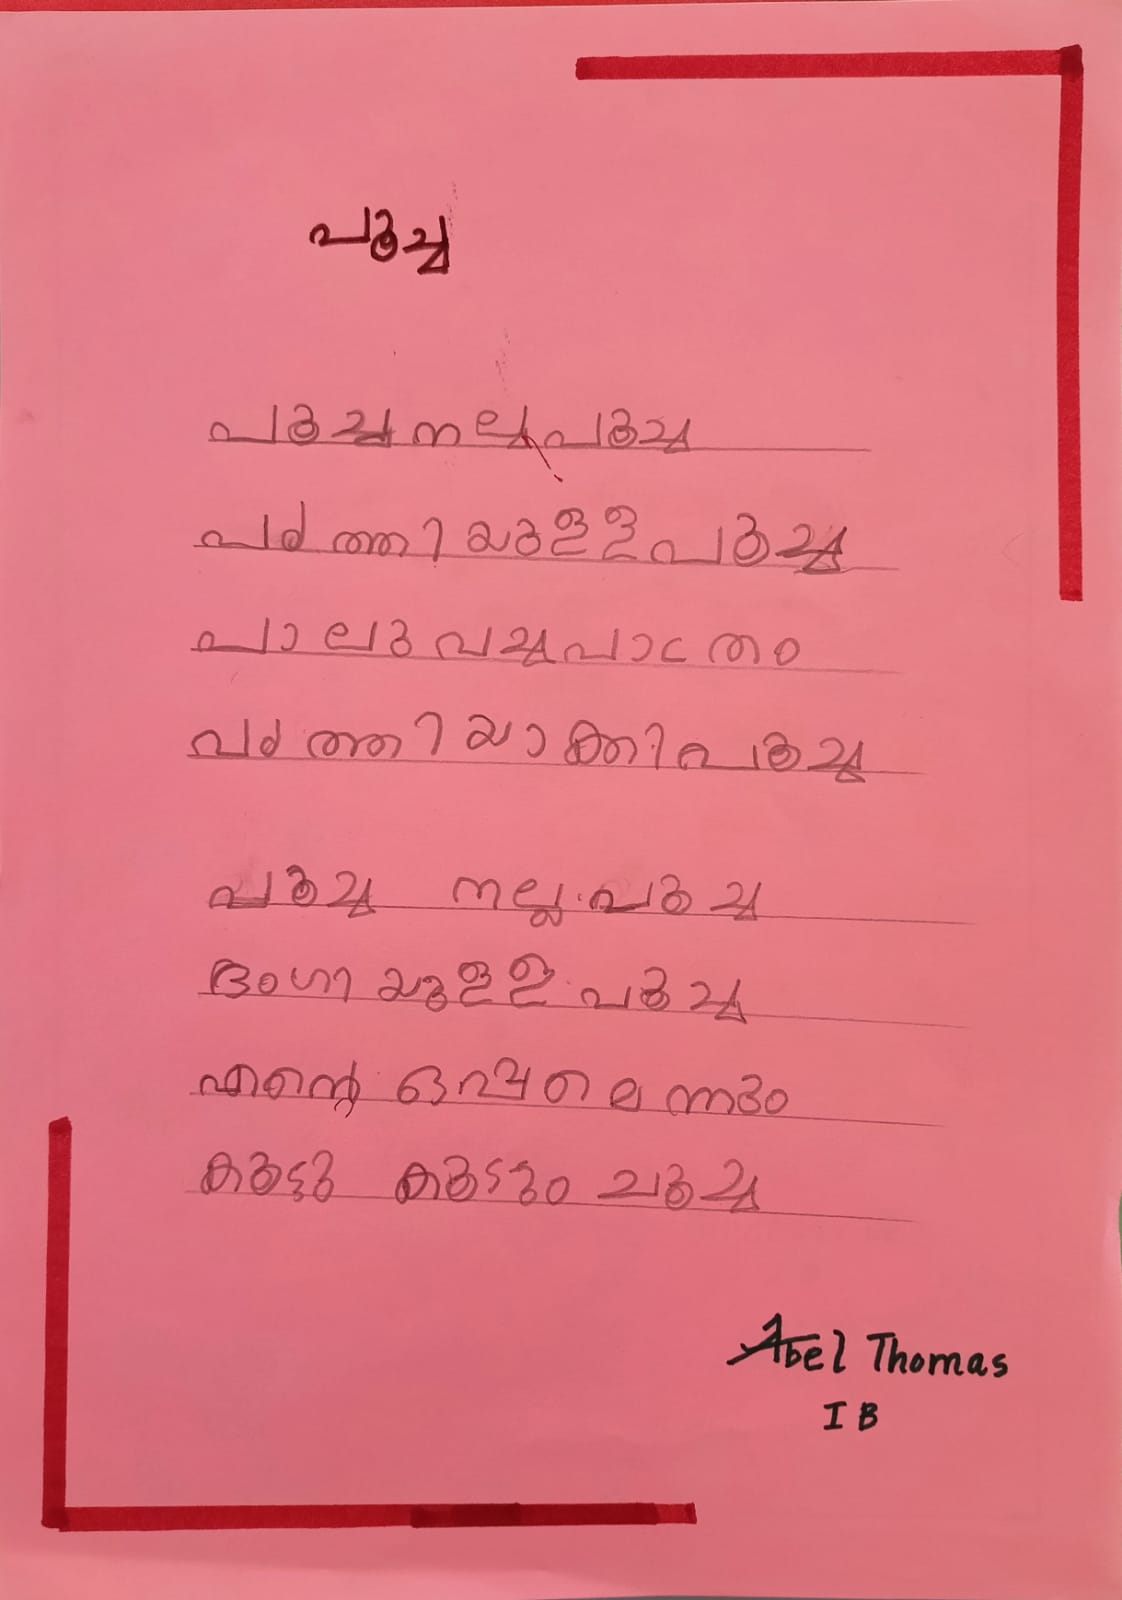 പൂച്ച
പൂച്ച നല്ല പൂച്ച
വൃത്തിയുള്ള പൂച്ച
പാലു വച്ച പാത്രം
വൃത്തിയാക്കി പൂച്ച
പൂച്ച നല്ല പൂച്ച
ഭംഗിയുള്ള പൂച്ച
എന്റെ
കൂട്ടു കൂടും പൂച്ച
Abel Thomas
I B